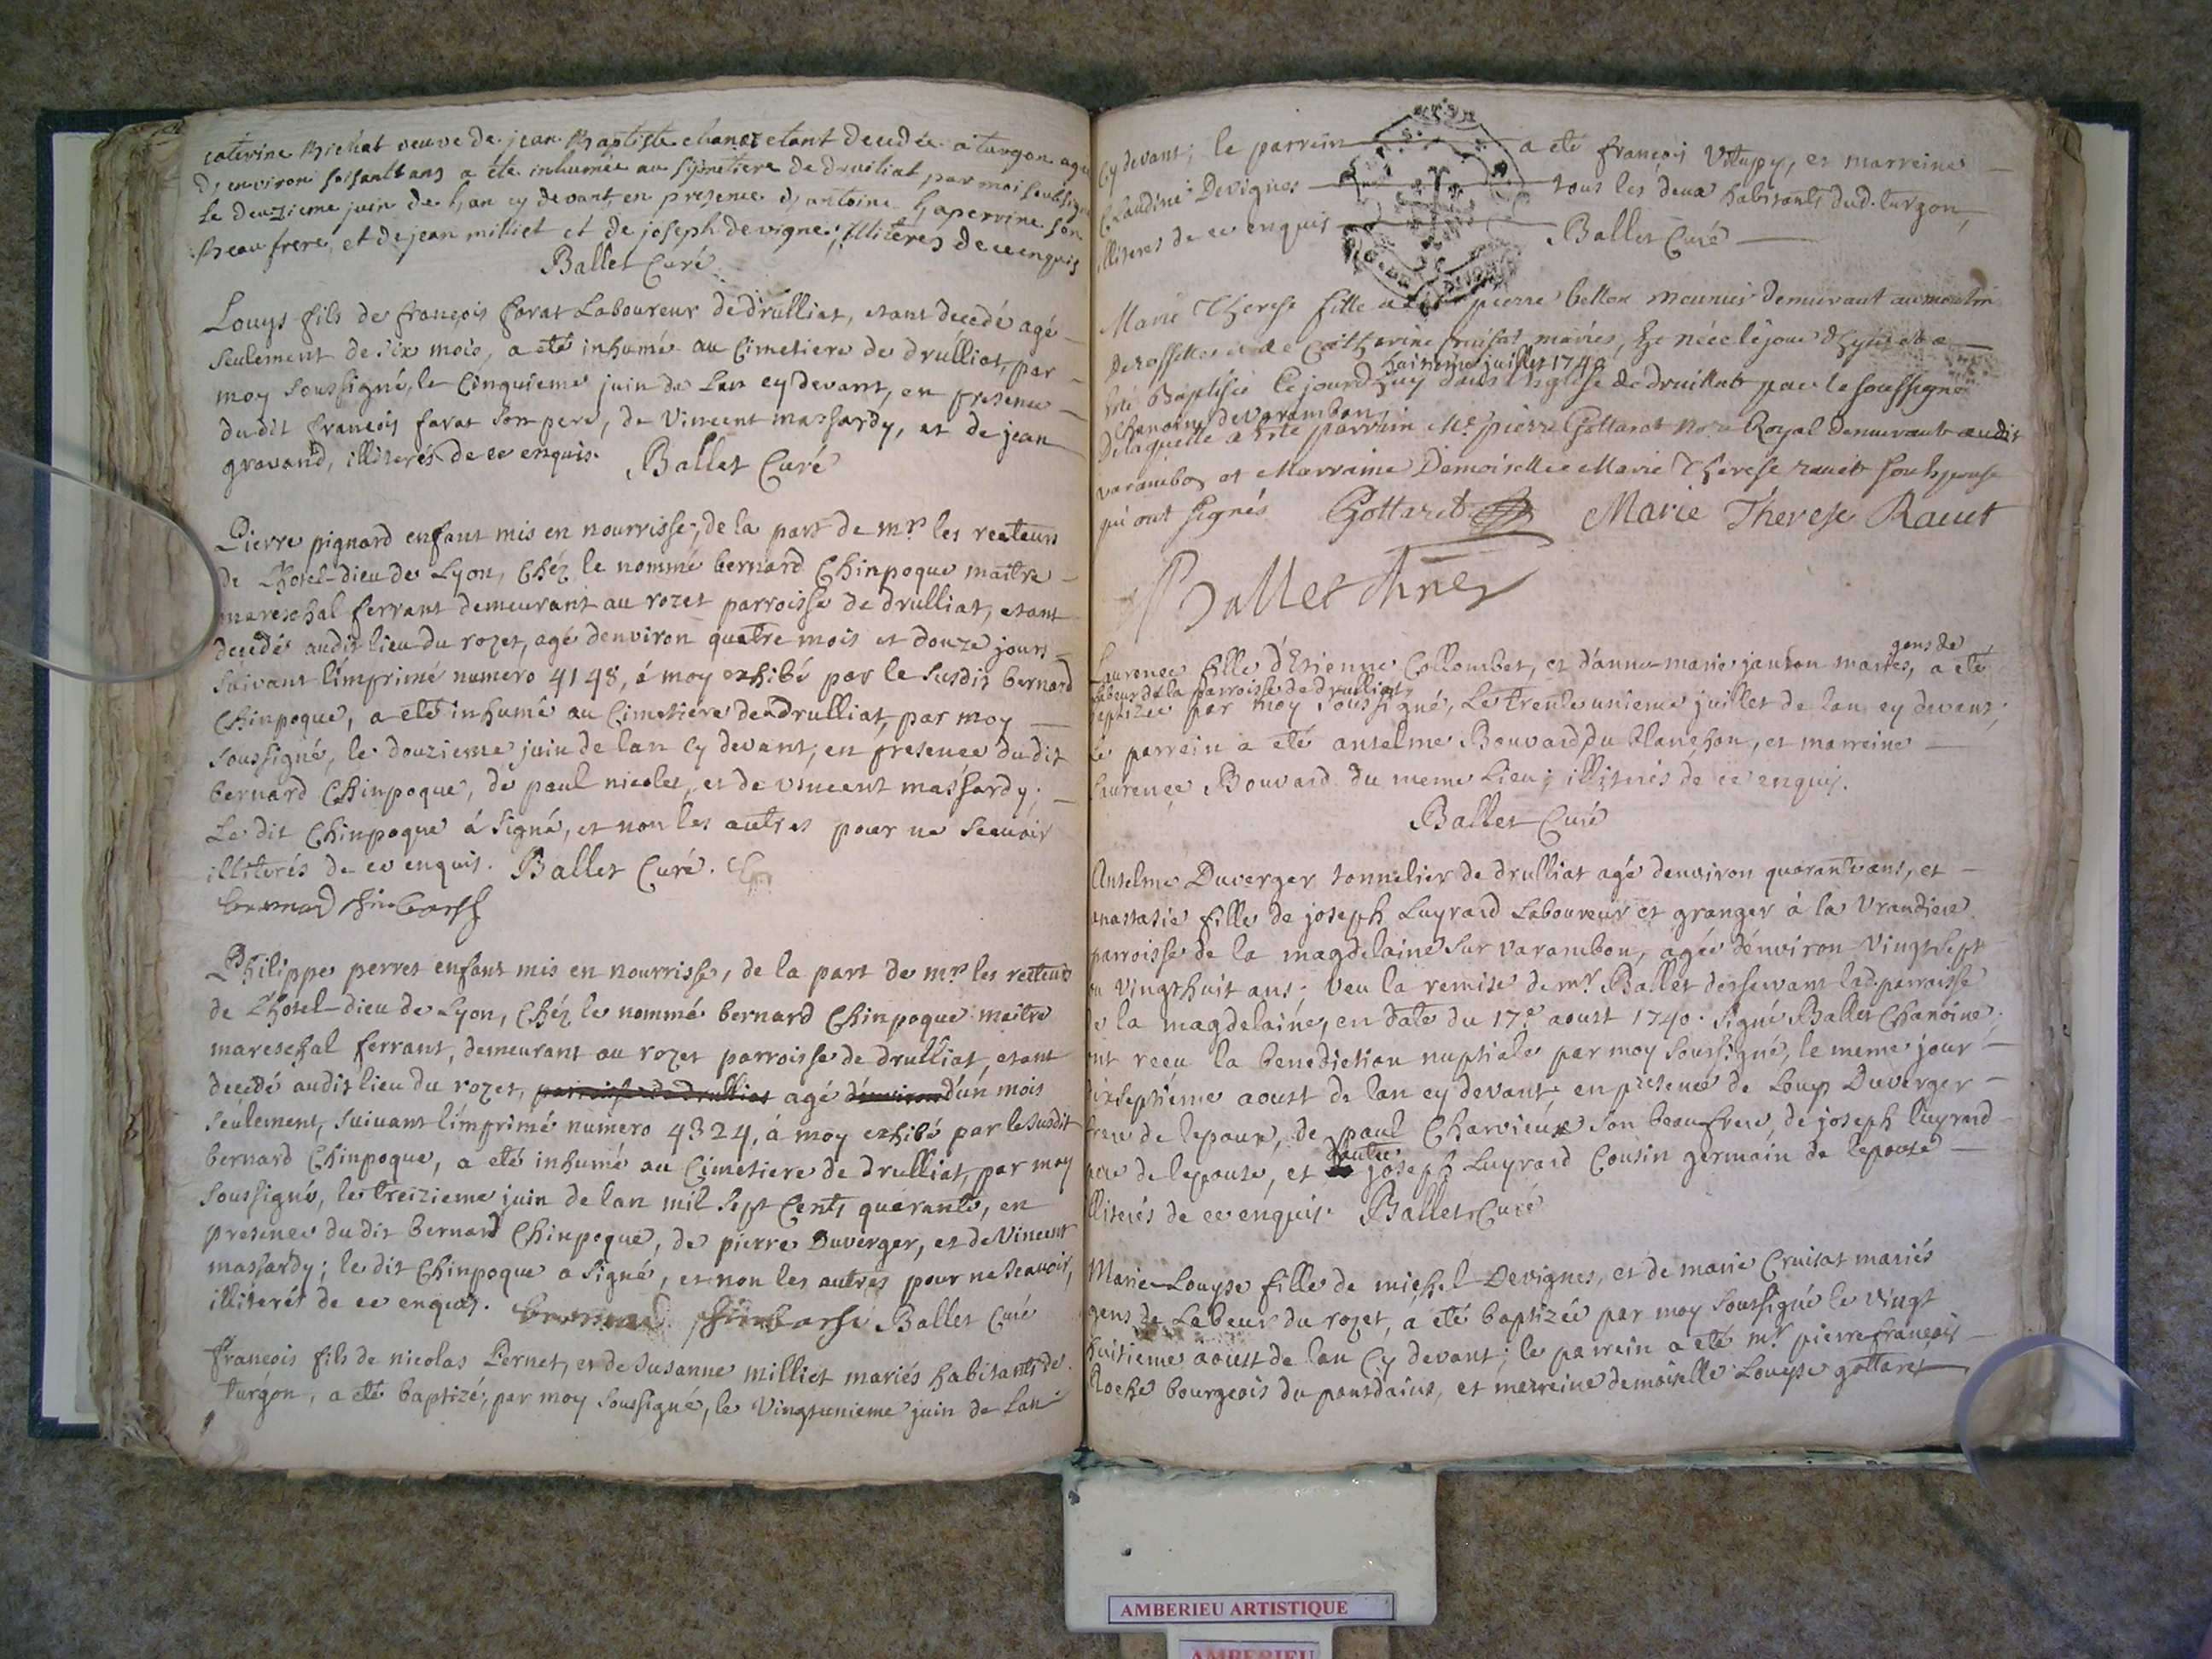 caterine Bichat veuve de jean Baptiste chanet etant decedée a turgon agée
d'environ soisantt ans a été inhumée au symetiere de druiliat par moi soubsigné
le deuzieme juin de l'an cy devant, en presence d'antoine lapervine son
beau frere, et de jean milliet et de joseph devigne; illiteres de ce enquis
Ballet Curé
Louys fils de françois farat Laboureur de drulliat, etant decedé agé
seulement de six mois, a eté inhumé au Cimetiere de drulliat, par
moy soussigné, le Cinquieme juin de Lan cy devant, en presence
dudit françois farat son pere, de Vincent massardy, et de jean
gravand, illiterés de ce enquis. Ballet Curé
Pierre pignard enfant mis en nourrisse, de la part de mrs les recteurs
de L'hotel-dieu de Lyon, Chéz le nommé bernard Chinpoque maitre
mareschal ferrant demeurant au rozet parroisse de drulliat, etant
decedé audit lieu du rozet, agé denviron quatre mois et douze jours
suivant l'imprimé numero 4148, á moy exhibé par le susdit bernard
Chinpoque, a eté inhumé au Cimetiere de drulliat, par moy
soussigné, le douzieme juin de lan cy devant, en presence du dit
bernard Chinpoque, de paul nicolet, et de vincent massardy;
Le dit Chinpoque á signé, et non les autres pour ne scavoir
illiterés de ce enquis. Ballet Curé.
bernard chinbarh
Philippe perret enfant mis en nourrisse, de la part de mrs les recteurs
de L'hotel-dieu de Lyon, Chéz le nommé bernard Chinpoque maitre
mareschal ferrant, demeurant au rozet parroisse de drulliat, etant
decedé audit lieu du rozet, parroisse de drulliat agé denviron d'un mois
seulement, suivant l'imprimé numero 4324, á moy exhibé par le susdit
bernard Chinpoque, a eté inhumé au Cimetiere de drulliat, par moy
soussigné, le treizieme juin de lan mil sept Cents quarante, en
presence du dit bernard Chinpoque, de pierre Duverger, et de Vincent
massardy; le dit Chinpoque a signé, et non les autres pour ne scavoir,
illiterés de ce enquis. bernard chinbarh Ballet Curé
françois fils de nicolas Pernet, et de susanne milliet mariés habitants de
turgon, a eté baptizé, par moy soussigné, le Vingtunieme juin de Lan
Cy devant; le parrein a eté françois Vitupy, et marreine
Claudine Devignes tous les deux habitants dud. turgon,
illiteres de ce enquis Ballet Curé
Marie Therese fille a pierre bellon meunier demurant au moulin
de rossettes et de Catherine cruisat mariés, Est née le jour d'hyer et a
huitieme juillet 1740
été Baptisée ce jourd'huy dans l'église de druillat par le soussigné
chanoine de varambon
De laquelle a été parrein Me pierre Gottaret nore Royal demeurant audit
varambon et Marraine Demoiselle Marie Therese ravet son epouse
qui ont signés Gottaret Marie Therese Rauet
Ballet chne
gens de
Laurence fille d'Etienne Collombet, et d'anne-marie janton mariés, a eté
labeur de la parroisse de drulliat,
baptizée par moy soussigné, Le trente unieme juillet de lan cy devant;
le parrein a eté anselme Bouvard du blanchon, et marreine
laurence Bouvard du meme Lieu; illiterés de ce enquis.
Ballet Curé
Anselme Duverger tonnelier de drulliat agé denviron quarante ans, et
anastasie fille de joseph Luyrard Laboureur et granger à la Vrandiere
parroisse de la magdelaine sur varambon, agée denviron vingt sept
ou vingthuit ans; veu la remise de mr Ballet desservant lad. parroisse
de la magdelaine, en date du 17e aoust 1740. signé Ballet Chanoine,
ont receu la benediction nuptiale par moy soussigné, le meme jour
dixseptieme aoust de lan cy devant; en presence de Louys Duverger
frere de lepoux, de paul Charvieux son beaufrere, de joseph luyrard
pere de lepouse, et dautre joseph Luyrard Cousin germain de lepouse
illiterés de ce enquis. Ballet Curé
Marie-Louyse fille de michel Devignes, et de marie Cruisat mariés
gens de Labeur du rozet, á eté baptizée par moy soussigné le vingt
huitieme aoust de lan Cy devant; le parrein a eté mr pierre françois
Roche bourgeois du pontdains, et marreine demoiselle Louyse gottaret
AMBERIEU ARTISTIQUE
AMBERIEU